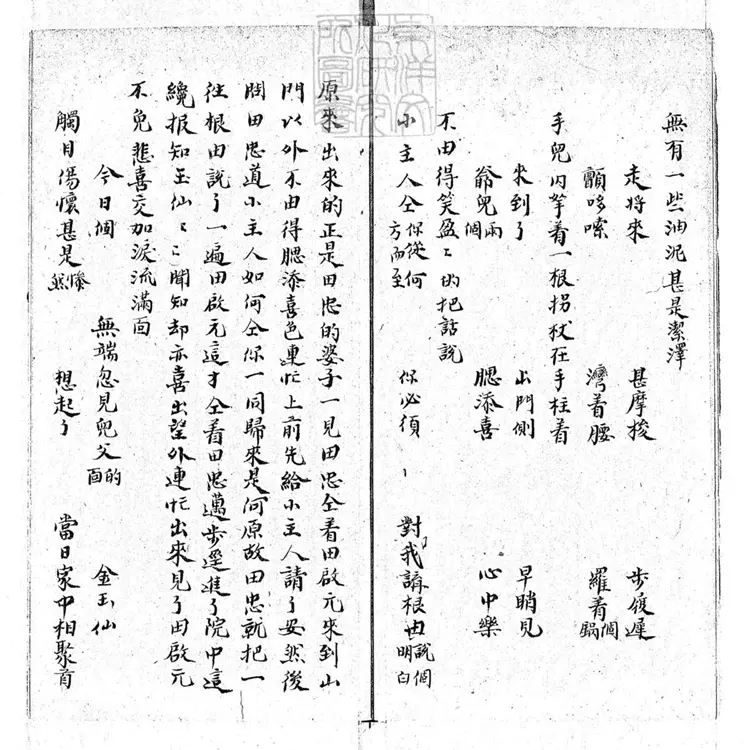 無有一些油泥甚是潔澤
走將來 甚摩挲 步履遲
顫哆嗦 灣着腰 羅着個鍋
手兒內拏着一根拐杖在手柱着
來到了 出門側 早瞧見
爺兒兩個 腮添喜 心中樂
不由得笑盈〻的把話說
小主人仝你從何方而至 你必須 對我講根由說個明白
原來出來的正是田忠的婆子一見田忠仝着田啟元來到山
門以外不由得腮添喜色連忙上前先給小主人請了安然後
問田忠道小主人如何仝你一同歸來是何原故田忠就把一
往根由說了一遍田啟元這才仝着田忠邁步逕進了院中這
纔报知玉仙〻聞知却亦喜出望外連忙出來見了田啟元
不免悲喜交加淚流滿面
今日個 無端忽見兒父的面 金玉仙
觸目傷懷甚是慘然 想起了 當日家中相聚首